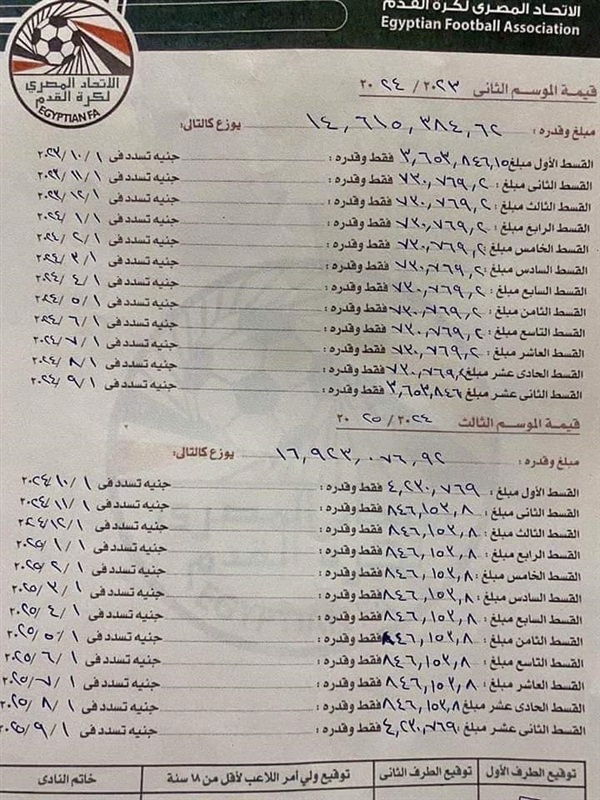 الاتحاد المصرى لكرة القدم
Egyptian Football Association
الاتحاد المصري
لكرة القدم
EGYPTIAN FA
قيمة الموسم الثانى ٢٠٢٣ / ٢٠٢٤
مبلغ وقدره : ١٤,٦١٥,٣٨٤,٦٢ يوزع كالتالى:
القسط الأول مبلغ ٣,٦٥٣,٨٤٦,١٥ فقط وقدره : جنيه تسدد فى ١ / ١٠ / ٢٠٢٣
القسط الثانى مبلغ : ٧٣٠,٧٦٩,٢ فقط وقدره : جنيه تسدد فى ١ / ١١ / ٢٠٢٣
القسط الثالث مبلغ : ٧٣٠,٧٦٩,٢ فقط وقدره : جنيه تسدد فى ١ / ١٢ / ٢٠٢٣
القسط الرابع مبلغ : ٧٣٠,٧٦٩,٢ فقط وقدره : جنيه تسدد فى ١ / ١ / ٢٠٢٤
القسط الخامس مبلغ : ٧٣٠,٧٦٩,٢ فقط وقدره : جنيه تسدد فى ١ / ٢ / ٢٠٢٤
القسط السادس مبلغ : ٧٣٠,٧٦٩,٢ فقط وقدره : جنيه تسدد فى ١ / ٣ / ٢٠٢٤
القسط السابع مبلغ : ٧٣٠,٧٦٩,٢ فقط وقدره : جنيه تسدد فى ١ / ٤ / ٢٠٢٤
القسط الثامن مبلغ : ٧٣٠,٧٦٩,٢ فقط وقدره : جنيه تسدد فى ١ / ٥ / ٢٠٢٤
القسط التاسع مبلغ : ٧٣٠,٧٦٩,٢ فقط وقدره : جنيه تسدد فى ١ / ٦ / ٢٠٢٤
القسط العاشر مبلغ : ٧٣٠,٧٦٩,٢ فقط وقدره : جنيه تسدد فى ١ / ٧ / ٢٠٢٤
القسط الحادى عشر مبلغ : ٧٣٠,٧٦٩,٢ فقط وقدره : جنيه تسدد فى ١ / ٨ / ٢٠٢٤
القسط الثانى عشر مبلغ ٣,٦٥٣,٨٤٦ فقط وقدره : جنيه تسدد فى ١ / ٩ / ٢٠٢٤
قيمة الموسم الثالث ٢٠٢٤ / ٢٠٢٥
مبلغ وقدره : ١٦,٩٢٣,٠٧٦,٩٢ يوزع كالتالى:
القسط الأول مبلغ : ٤,٢٣٠,٧٦٩ فقط وقدره : جنيه تسدد فى ١ / ١٠ / ٢٠٢٤
القسط الثانى مبلغ : ٨٤٦,١٥٣,٨ فقط وقدره : جنيه تسدد فى ١ / ١١ / ٢٠٢٤
القسط الثالث مبلغ : ٨٤٦,١٥٣,٨ فقط وقدره : جنيه تسدد فى ١ / ١٢ / ٢٠٢٤
القسط الرابع مبلغ : ٨٤٦,١٥٣,٨ فقط وقدره : جنيه تسدد فى ١ / ١ / ٢٠٢٥
القسط الخامس مبلغ : ٨٤٦,١٥٣,٨ فقط وقدره : جنيه تسدد فى ١ / ٢ / ٢٠٢٥
القسط السادس مبلغ : ٨٤٦,١٥٣,٨ فقط وقدره : جنيه تسدد فى ١ / ٣ / ٢٠٢٥
القسط السابع مبلغ : ٨٤٦,١٥٣,٨ فقط وقدره : جنيه تسدد فى ١ / ٤ / ٢٠٢٥
القسط الثامن مبلغ : ٨٤٦,١٥٣,٨ فقط وقدره : جنيه تسدد فى ١ / ٥ / ٢٠٢٥
القسط التاسع مبلغ : ٨٤٦,١٥٣,٨ فقط وقدره : جنيه تسدد فى ١ / ٦ / ٢٠٢٥
القسط العاشر مبلغ : ٨٤٦,١٥٣,٨ فقط وقدره : جنيه تسدد فى ١ / ٧ / ٢٠٢٥
القسط الحادى عشر مبلغ : ٨٤٦,١٥٣,٨ فقط وقدره : جنيه تسدد فى ١ / ٨ / ٢٠٢٥
القسط الثانى عشر مبلغ : ٤,٢٣٠,٧٦٩ فقط وقدره : جنيه تسدد فى ١ / ٩ / ٢٠٢٥
توقيع الطرف الأول توقيع الطرف الثانى توقيع ولي أمر اللاعب لأقل من ١٨ سنة خاتم النادى